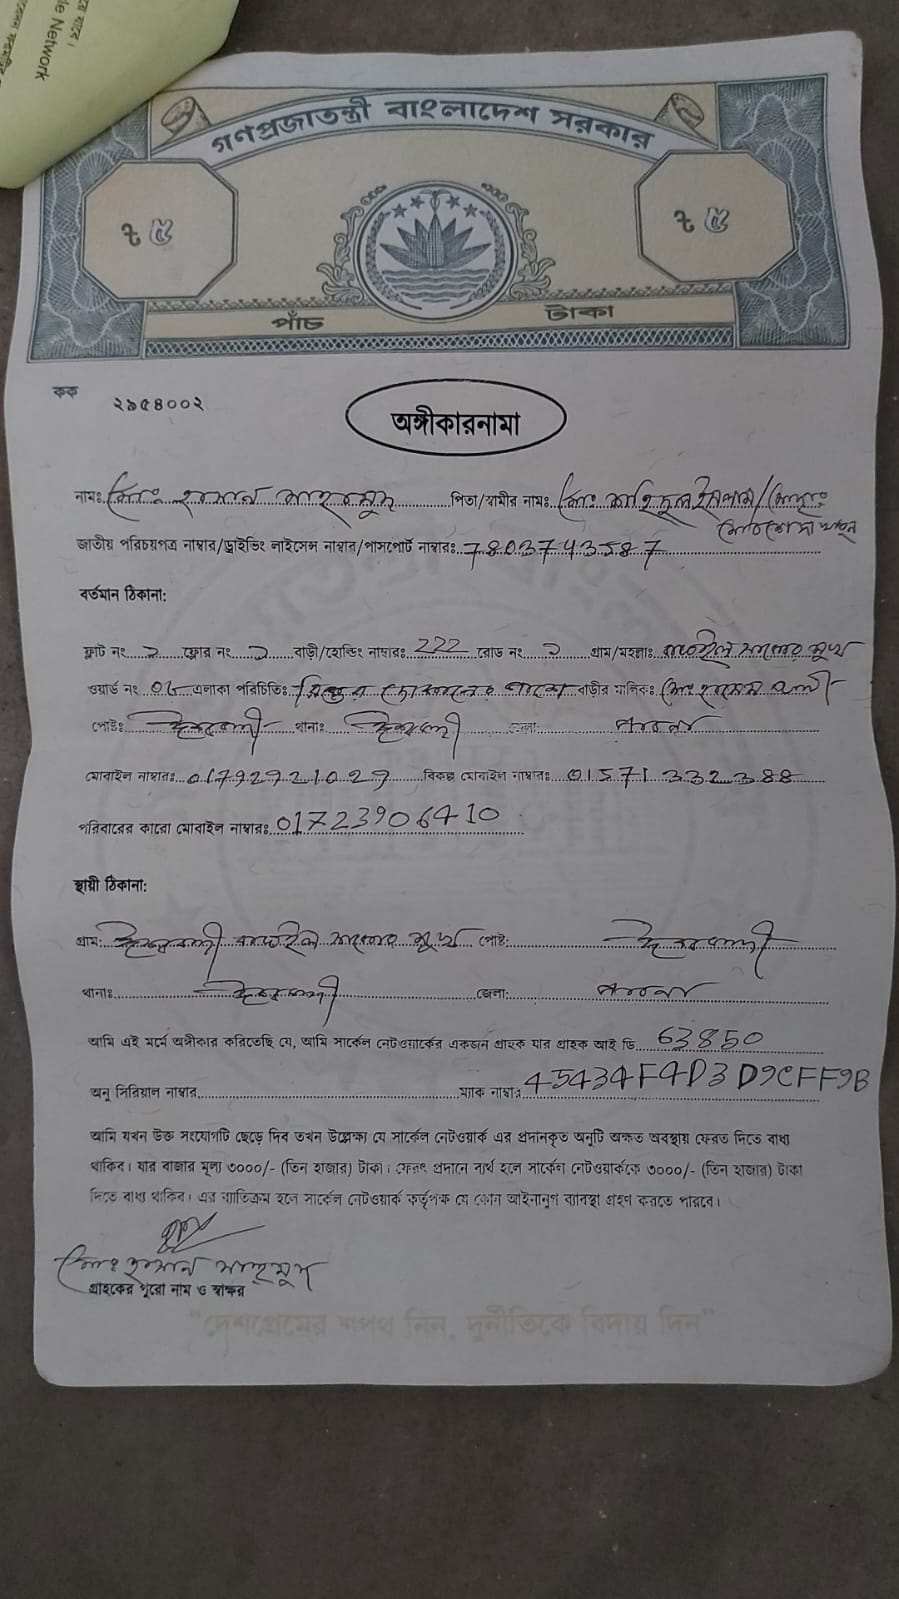 le Network
গণপ্রজাতন্ত্রী বাংলাদেশ সরকার
৳ ৫ ৳ ৫
পাঁচ টাকা
কক ২৯৫৪০০২
অঙ্গীকারনামা
নামঃ মোঃ হাসান মাহমুদ পিতা/স্বামীর নামঃ মোঃ ইসলাম/মোছাঃ
জাতীয় পরিচয়পত্র নাম্বার/ড্রাইভিং লাইসেন্স নাম্বার/পাসপোর্ট নাম্বারঃ 7803743587
বর্তমান ঠিকানা:
ফ্লাট নং ফ্লোর নং বাড়ী/হোল্ডিং নাম্বারঃ 222 রোড নং গ্রাম/মহল্লাঃ মুখ
ওয়ার্ড নং এলাকা পরিচিতিঃ দোকানের পাশে বাড়ীর মালিকঃ মোঃ আলী
পোষ্টঃ ঈশ্বরদী থানাঃ ঈশ্বরদী জেলা: পাবনা
মোবাইল নাম্বারঃ 01792921029 বিকল্প মোবাইল নাম্বারঃ 01571332388
পরিবারের কারো মোবাইল নাম্বারঃ 01723906410
স্থায়ী ঠিকানা:
গ্রাম: ঈশ্বরদী মুখ পোষ্ট: ঈশ্বরদী
থানাঃ ঈশ্বরদী জেলা: পাবনা
আমি এই মর্মে অঙ্গীকার করিতেছি যে, আমি সার্কেল নেটওয়ার্কের একজন গ্রাহক যার গ্রাহক আই ডি 63850
অনু সিরিয়াল নাম্বার ম্যাক নাম্বার 45434F4D3D9CFF9B
আমি যখন উক্ত সংযোগটি ছেড়ে দিব তখন উল্লেক্ষ্য যে সার্কেল নেটওয়ার্ক এর প্রদানকৃত অনুটি অক্ষত অবস্থায় ফেরত দিতে বাধ্য
থাকিব। যার বাজার মূল্য ৩০০০/- (তিন হাজার) টাকা। ফেরৎ প্রদানে ব্যর্থ হলে সার্কেল নেটওয়ার্ককে ৩০০০/- (তিন হাজার) টাকা
দিতে বাধ্য থাকিব। এর ব্যতিক্রম হলে সার্কেল নেটওয়ার্ক কর্তৃপক্ষ যে কোন আইনানুগ ব্যাবস্থা গ্রহণ করতে পারবে।
মোঃ হাসান মাহমুদ
গ্রাহকের পুরো নাম ও স্বাক্ষর
"দেশপ্রেমের শপথ নিন, দুর্নীতিকে বিদায় দিন"